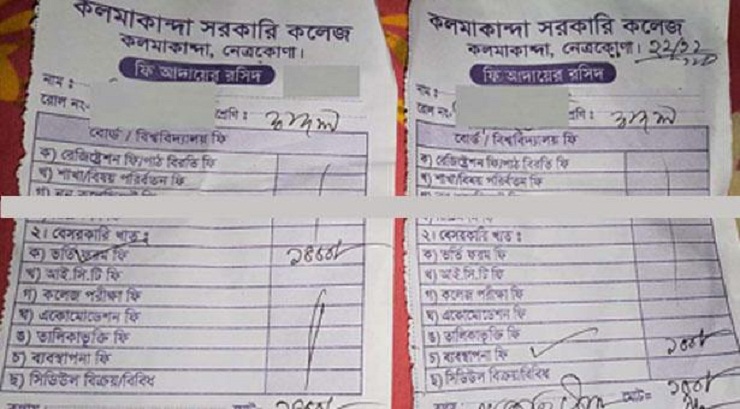 কলমাকান্দা সরকারি কলেজ
কলমাকান্দা, নেত্রকোণা।
ফি আদায়ের রসিদ
নাম :
রোল নং-
শ্রেণি :
বোর্ড / বিশ্ববিদ্যালয় ফি
ক) রেজিষ্ট্রেশন ফি/পাঠ বিরতি ফি
খ) শাখা/বিষয় পরিবর্তন ফি
২। বেসরকারি খাত :
ক) ভর্তি ফরম ফি
খ) আই.সি.টি ফি
গ) কলেজ পরীক্ষা ফি
ঘ) একোমোডেশন ফি
ঙ) তালিকাভুক্তি ফি
চ) ব্যবস্থাপনা ফি
ছ) সিডিউল বিক্রয়/বিবিধ
কলমাকান্দা সরকারি কলেজ
কলমাকান্দা, নেত্রকোণা।
ফি আদায়ের রসিদ
নাম :
রোল নং-
বোর্ড / বিশ্ববিদ্যালয় ফি
ক) রেজিষ্ট্রেশন ফি/পাঠ বিরতি ফি
খ) শাখা/বিষয় পরিবর্তন ফি
২। বেসরকারি খাত :
ক) ভর্তি ফরম ফি
খ) আই.সি.টি ফি
গ) কলেজ পরীক্ষা ফি
ঘ) একোমোডেশন ফি
ঙ) তালিকাভুক্তি ফি
চ) ব্যবস্থাপনা ফি
ছ) সিডিউল বিক্রয়/বিবিধ
মোট=